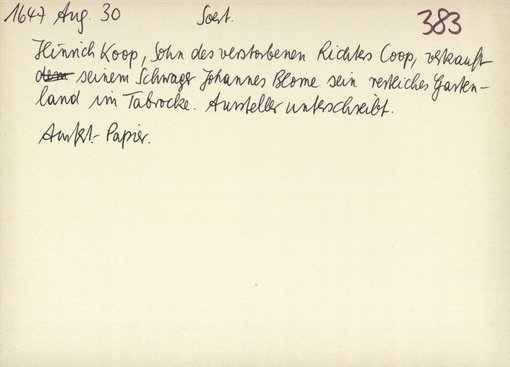 1647 Aug. 30 Soest. 383
Hinrich Koop, Sohn des verstorbenen Richters Coop, verkauft
dem seinem Schwager Johannes Blome sein restliches Garten-
land im Tabrocke. Aussteller unterschreibt.
Ausfert.-Papier.